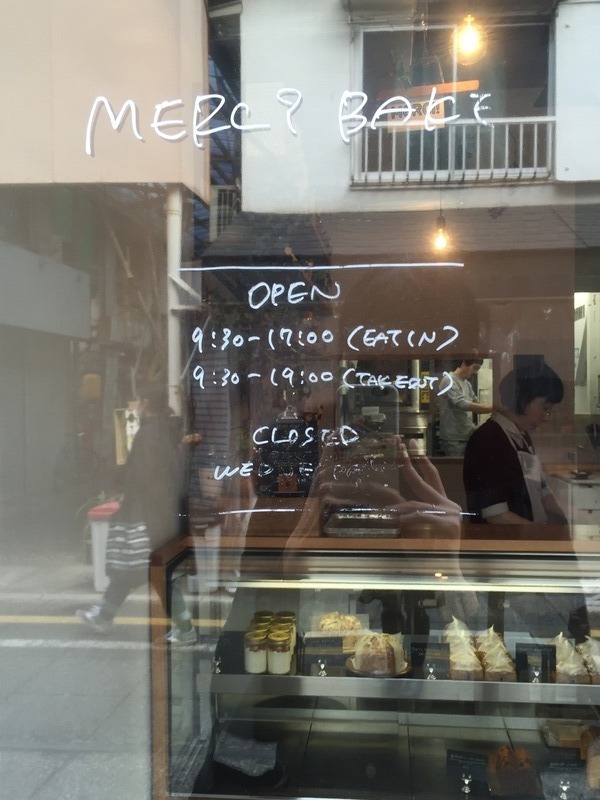 MERCI BAKE
OPEN
9:30-17:00 (EAT IN)
9:30-19:00 (TAKEOUT)
CLOSED
WEDNESDAY